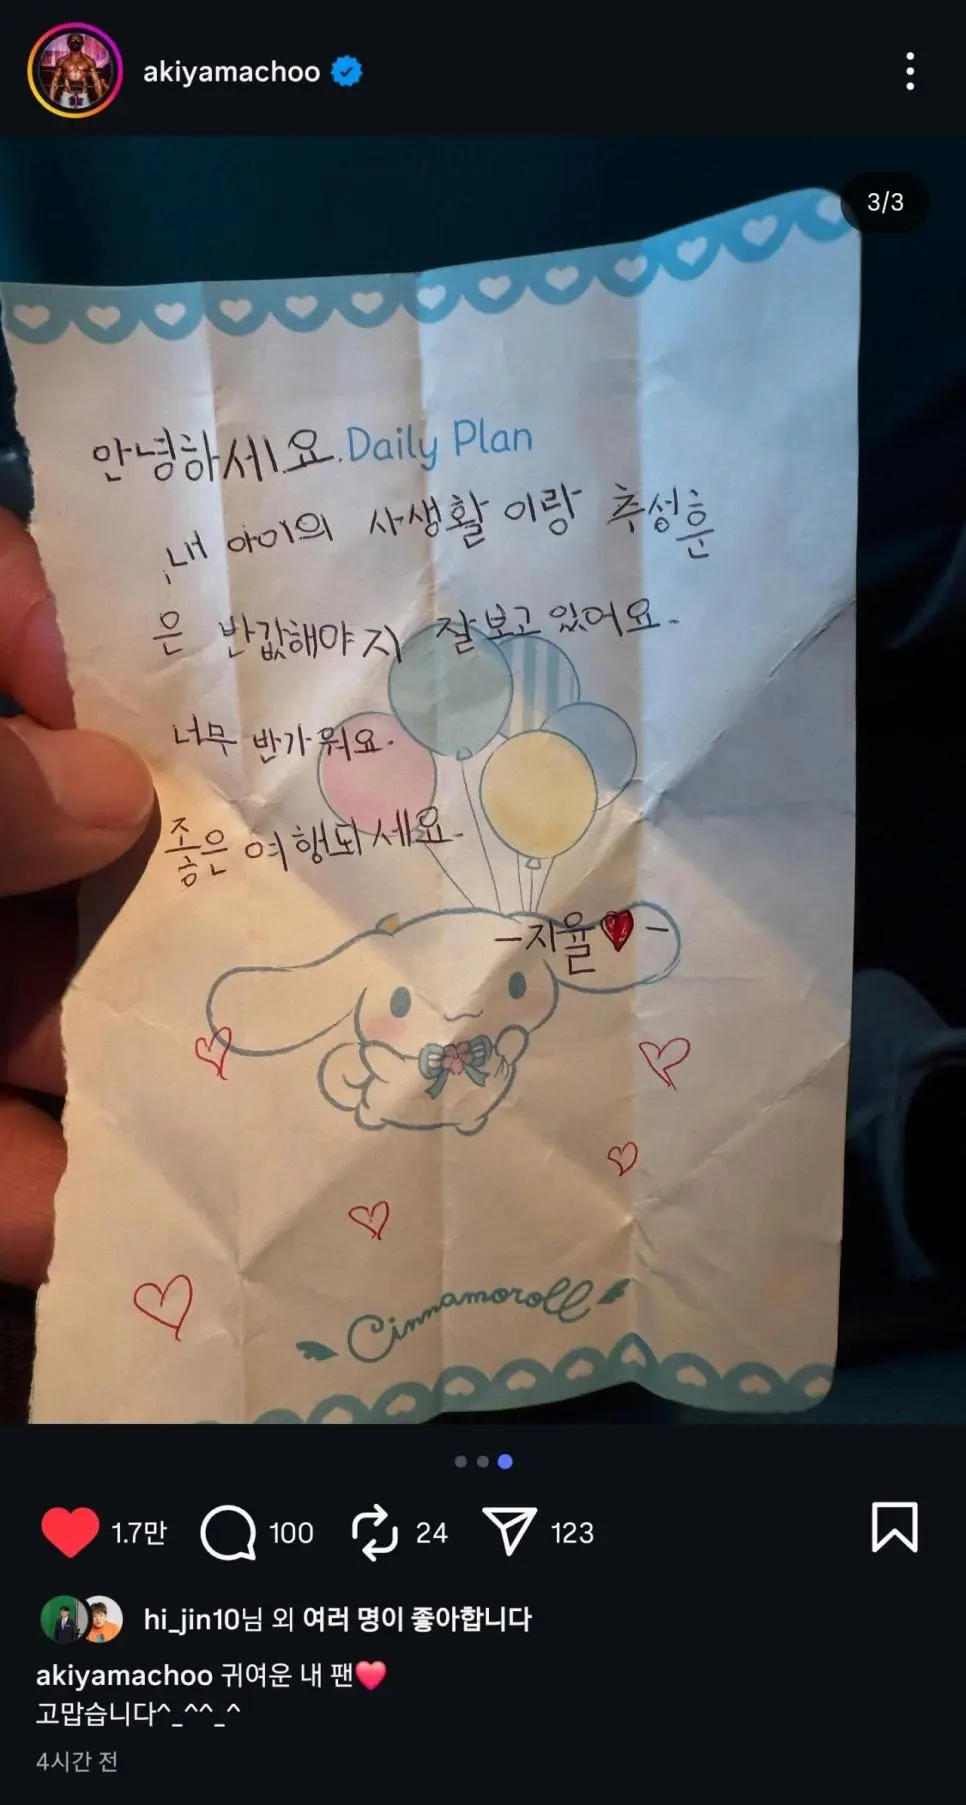 akiyamachoo
3/3
안녕하세요.
Daily Plan
내 아이의 사생활 이랑 추성훈
은 반값해야지 잘보고있어요.
너무 반가워요.
좋은 여행되세요.
-지율♥-
Cinnamoroll
1.7만 100 24 123
hi_jin10님 외 여러 명이 좋아합니다
akiyamachoo 귀여운 내 팬❤️
고맙습니다^_^^_^
4시간 전